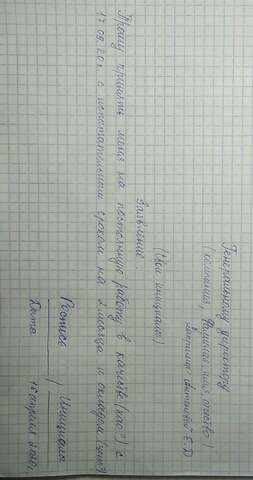 Генеральному директору
(компания, Фамилия, имя, отчество)
Е.Д
(Свои инициалы)
Заявление.
Прошу принять меня на постоянную работу в качестве (кого?) с
с испытательным сроком на 2 месяца и окладом (цена)
Роспись / Инициалы
Дата